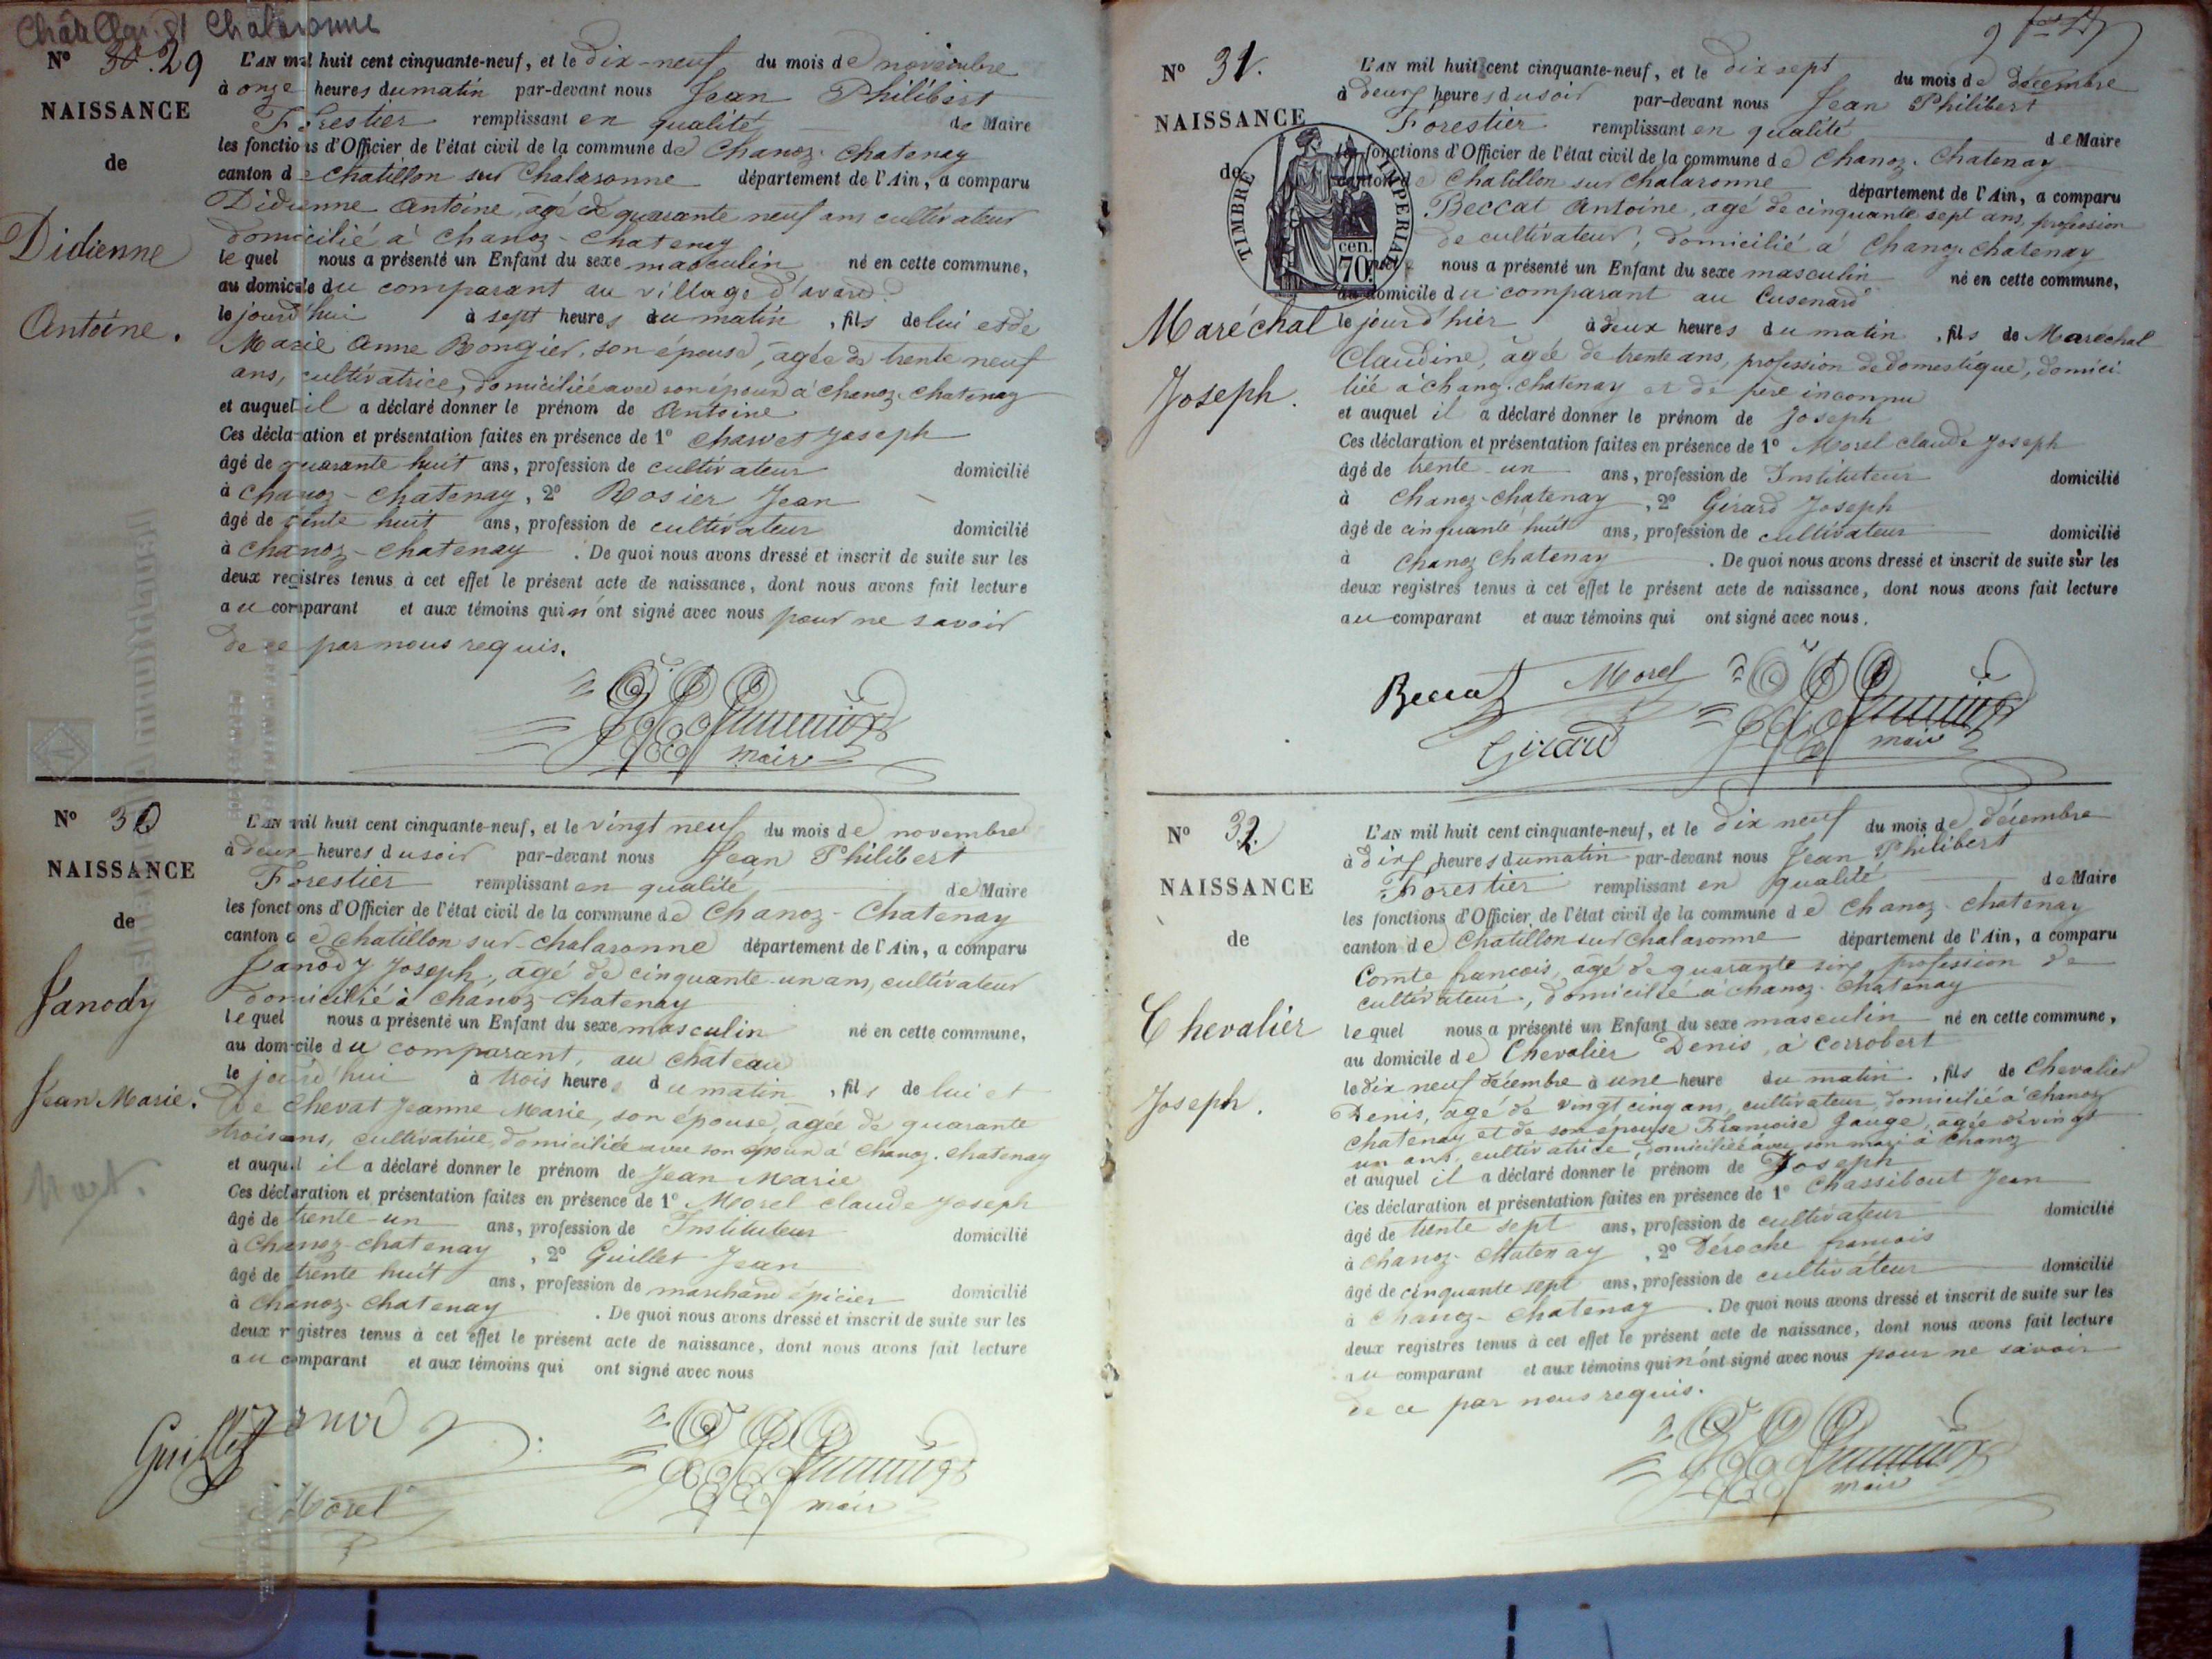 Chalaronne
Nº 30. 29
NAISSANCE
de
Didienne
Antoine.
L'AN mil huit cent cinquante-neuf, et le dix-neuf du mois de novembre
à onze heures du matin par-devant nous Jean Philibert
Forestier remplissant en qualité de Maire
les fonctions d'Officier de l'état civil de la commune de Chanoz-Chatenay
canton de Chatillon sur Chalaronne département de l'Ain, a comparu
Didienne Antoine, agé de quarante neuf ans cultivateur
domicilié à Chanoz-Chatenay
lequel nous a présenté un Enfant du sexe masculin né en cette commune,
au domicile du comparant au village d'avard
le jourd'hui à sept heures du matin, fils de lui et de
Marie Anne Bongier, son épouse, agée de trente neuf
ans, cultivatrice, domiciliée avec son époux à Chanoz-Chatenay
et auquel il a déclaré donner le prénom de Antoine
Ces déclaration et présentation faites en présence de 1º Charvet Joseph
âgé de quarante huit ans, profession de cultivateur domicilié
à Chanoz-Chatenay, 2º Rosier Jean
âgé de huit ans, profession de cultivateur domicilié
à Chanoz-Chatenay. De quoi nous avons dressé et inscrit de suite sur les
deux registres tenus à cet effet le présent acte de naissance, dont nous avons fait lecture
au comparant et aux témoins qui n'ont signé avec nous pour ne savoir
de ce par nous requis.
maire
Nº 30
NAISSANCE
de
Janody
Jean Marie.
L'AN mil huit cent cinquante-neuf, et le vingt neuf du mois de novembre
à deux heures du soir par-devant nous Jean Philibert
Forestier remplissant en qualité de Maire
les fonctions d'Officier de l'état civil de la commune de Chanoz-Chatenay
canton de Chatillon sur-chalaronne département de l'Ain, a comparu
Janody Joseph, agé de cinquante-un ans, cultivateur
domicilié à Chanoz-Chatenay
lequel nous a présenté un Enfant du sexe masculin né en cette commune,
au domicile du comparant, au chateau
le jourd'hui à trois heures du matin, fils de lui et
de Chevat Jeanne Marie, son épouse, agée de quarante
trois ans, cultivatrice, domiciliée avec son époux à Chanoz-Chatenay
et auquel il a déclaré donner le prénom de Jean Marie
Ces déclaration et présentation faites en présence de 1º Morel Claude Joseph
âgé de trente-un ans, profession de Instituteur domicilié
à Chanoz-chatenay, 2º Guillet Jean
âgé de trente huit ans, profession de marchand épicier domicilié
à Chanoz-Chatenay. De quoi nous avons dressé et inscrit de suite sur les
deux registres tenus à cet effet le présent acte de naissance, dont nous avons fait lecture
au comparant et aux témoins qui ont signé avec nous
Guillet
Morel
maire
Nº 31.
NAISSANCE
de
TIMBRE IMPERIAL
70 cen.
Maréchal
Joseph.
L'AN mil huit cent cinquante-neuf, et le dix sept du mois de décembre
à deux heures du soir par-devant nous Jean Philibert
Forestier remplissant en qualité de Maire
les fonctions d'Officier de l'état civil de la commune de Chanoz-Chatenay
canton de Chatillon sur Chalaronne département de l'Ain, a comparu
Beccat Antoine, agé de cinquante sept ans, profession
de cultivateur, domicilié à Chanoz-Chatenay
lequel nous a présenté un Enfant du sexe masculin né en cette commune,
au domicile du comparant au Cusenard
le jour d'hier à deux heures du matin, fils de Maréchal
Claudine, âgée de trente ans, profession de domestique, domici
liée a chanoz-chatenay et de père inconnu
et auquel il a déclaré donner le prénom de Joseph
Ces déclaration et présentation faites en présence de 1º Morel claude Joseph
âgé de trente-un ans, profession de Instituteur domicilié
à Chanoz-chatenay, 2º Girard Joseph
âgé de cinquante huit ans, profession de cultivateur domicilié
à Chanoz Chatenay. De quoi nous avons dressé et inscrit de suite sur les
deux registres tenus à cet effet le présent acte de naissance, dont nous avons fait lecture
au comparant et aux témoins qui ont signé avec nous.
Beccat Morel
Girard maire
Nº 32.
NAISSANCE
de
Chevalier
Joseph.
L'AN mil huit cent cinquante-neuf, et le dix neuf du mois de décembre
à dix heures du matin par-devant nous Jean Philibert
Forestier remplissant en qualité de Maire
les fonctions d'Officier de l'état civil de la commune de Chanoz-chatenay
canton de Chatillon sur Chalaronne département de l'Ain, a comparu
Comte francois, agé de quarante six, profession de
cultivateur, domicilié à chanoz-Chatenay
lequel nous a présenté un Enfant du sexe masculin né en cette commune,
au domicile de Chevalier Denis, à Corrobert
le dix neuf décembre à une heure du matin, fils de Chevalier
Denis, agé de vingt cinq ans, cultivateur, domicilié à chanoz
chatenay et de son épouse Francoise Gauge, agée de vingt
un ans, cultivatrice, domiciliée avec son mari à Chanoz
et auquel il a déclaré donner le prénom de Joseph
Ces déclaration et présentation faites en présence de 1º Chassibout Jean
âgé de trente sept ans, profession de cultivateur domicilié
à Chanoz-Chatenay, 2º Déroche francois
âgé de cinquante sept ans, profession de cultivateur domicilié
à Chanoz-Chatenay. De quoi nous avons dressé et inscrit de suite sur les
deux registres tenus à cet effet le présent acte de naissance, dont nous avons fait lecture
au comparant et aux témoins qui n'ont signé avec nous pour ne savoir
de ce par nous requis.
maire